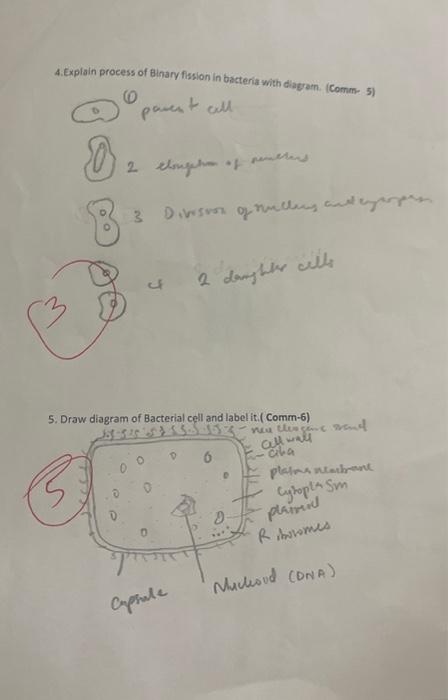 4.Explain process of Binary fission in bacteria with diagram. (Comm- 5)
1 parent cell
2 elongation of
3 Division of nucleus and
4 2 daughter cells
3
5. Draw diagram of Bacterial cell and label it.( Comm-6)
cell wall
cilia
plasma membrane
cytoplasm
plasmid
Ribosomes
5
Capsule
Nucleoid (DNA)